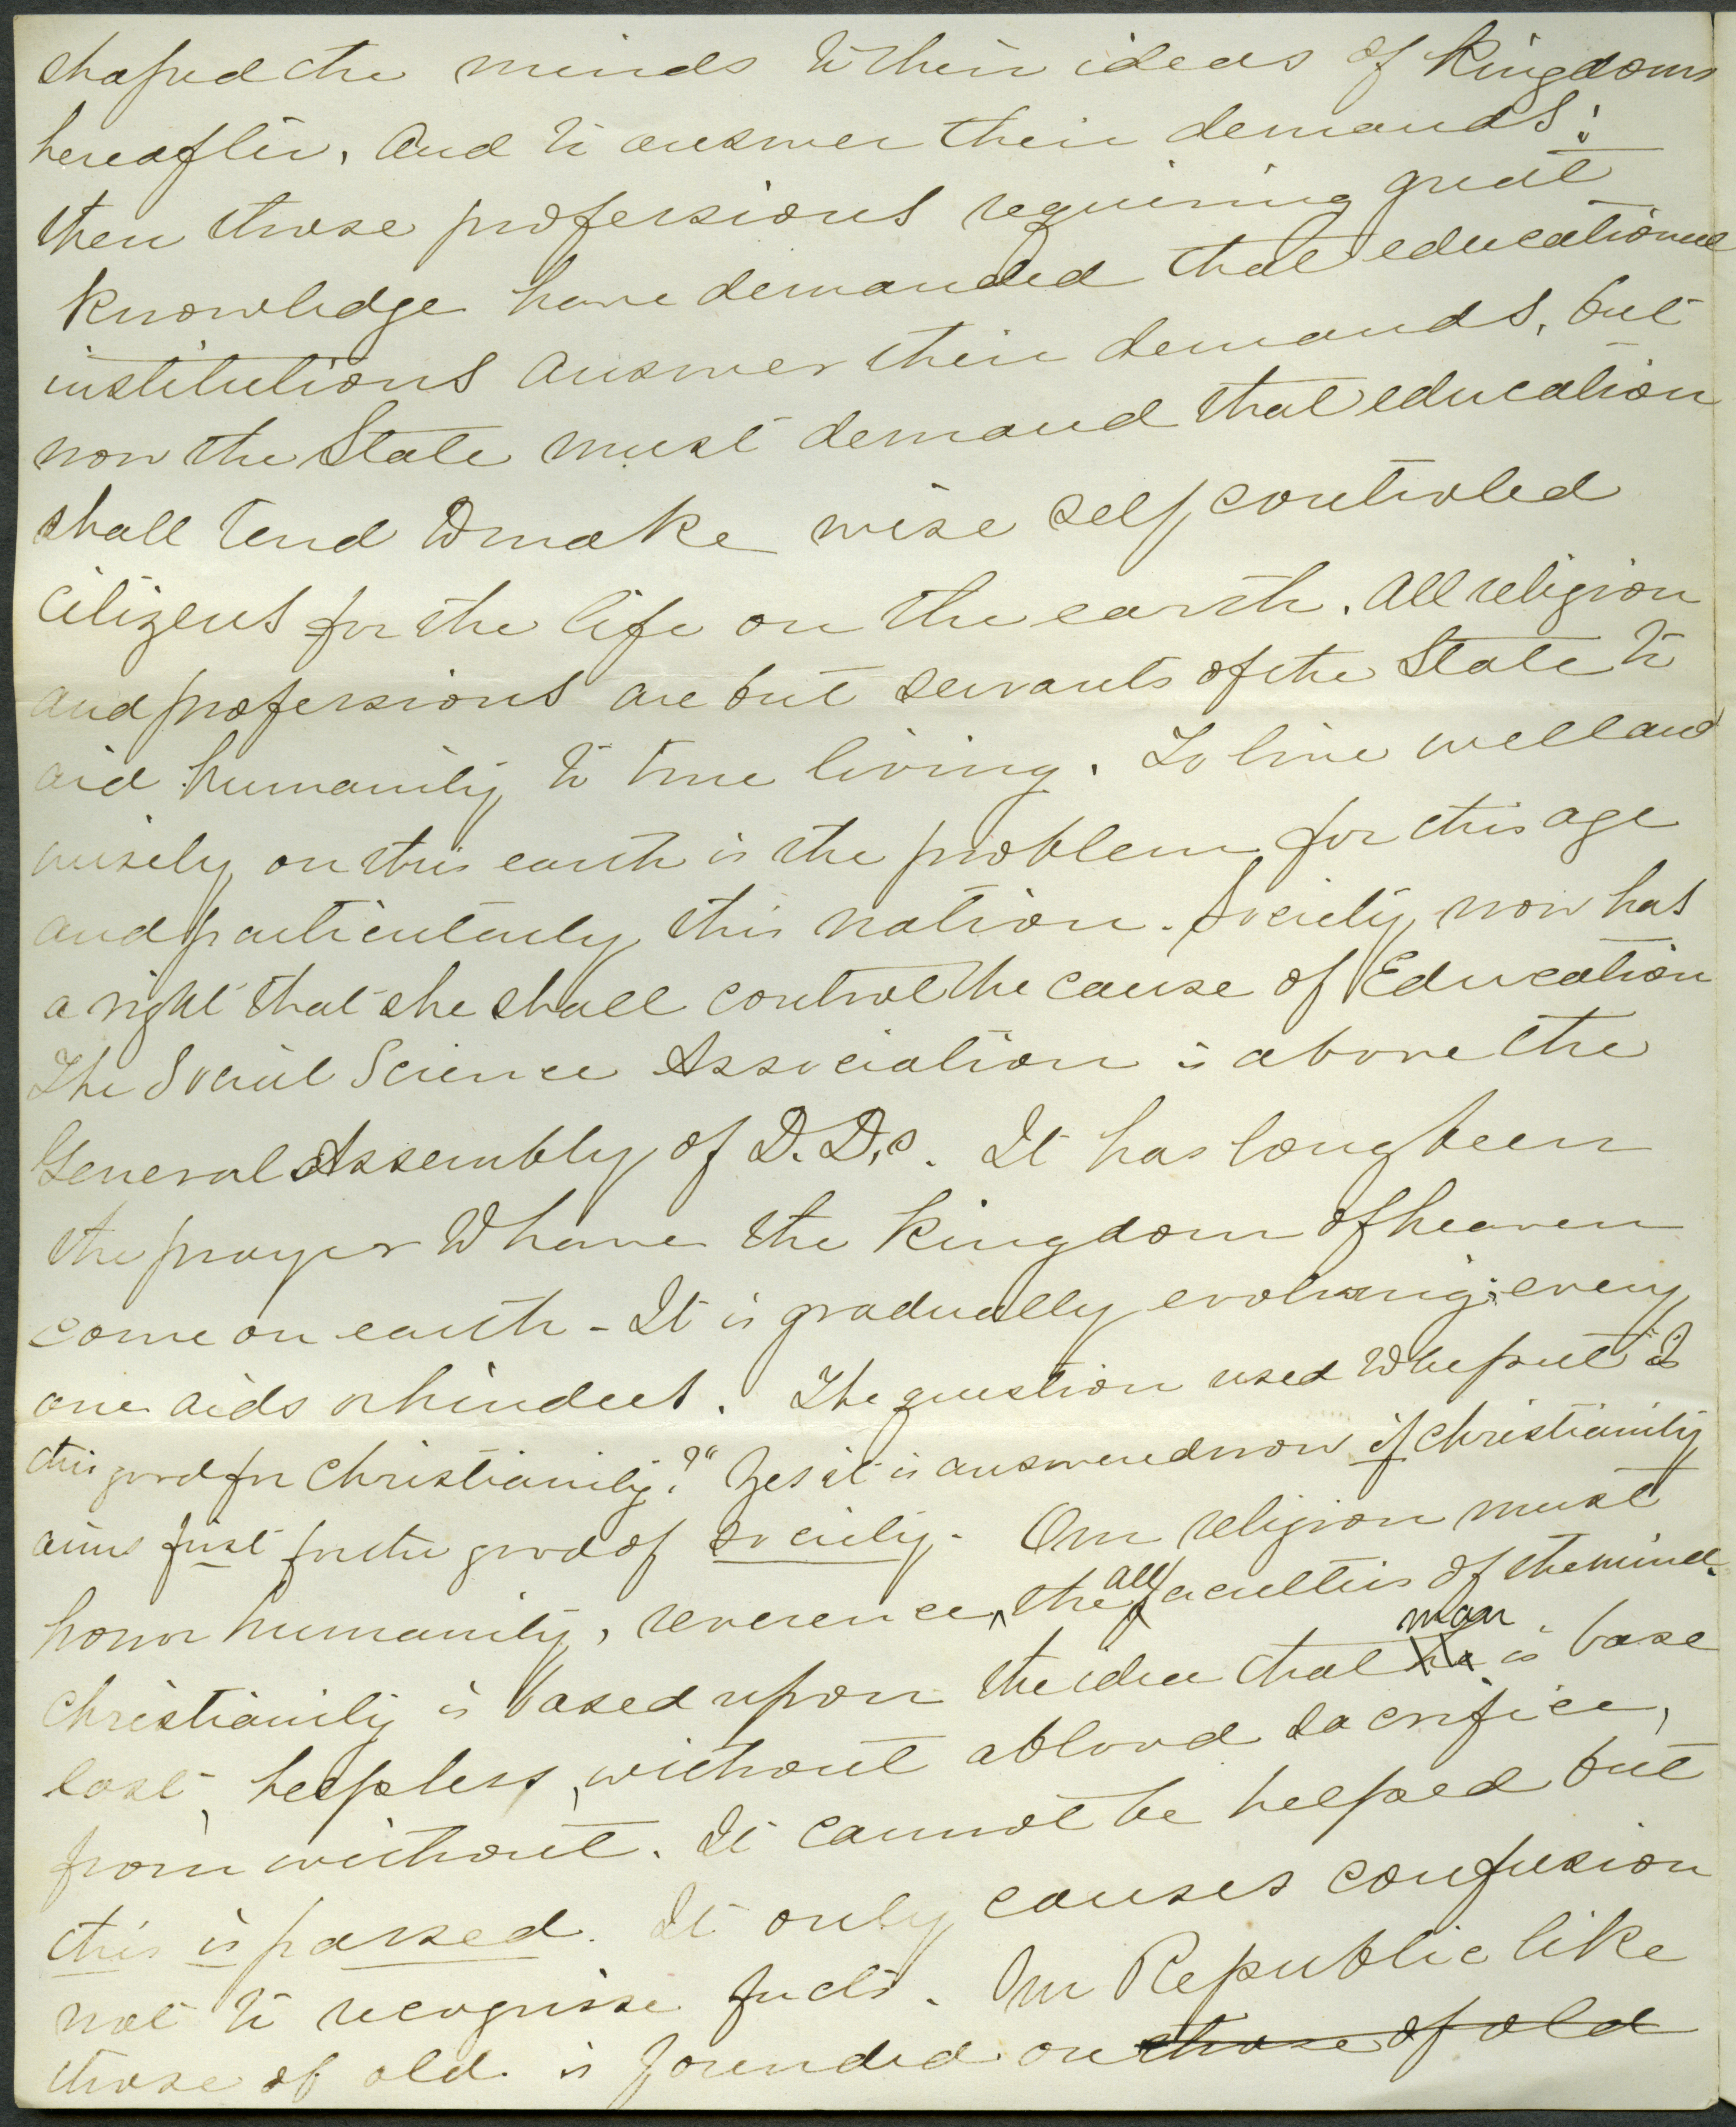 shaped the minds to their ideas of Kingdoms
hereafter, and to answer their demands;
then those professions requiring great
knowledge have demanded that educational
institutions answer their demands, but
now the State must demand that education
shall tend to make wise self controled
citizens for the life on the earth. All religion
and professions are but servants of the State to
aid humanity to true living. To live well and
wisely on this earth is the problem for this age
and particularly this nation. Society now has
a right that she shall control the cause of Education
The Social Science Association is above the
General Assembly of D.D.s. It has long been
the prayer to have the Kingdom of heaven
come on earth - It is gradually evolving; every
one aids or hinders. The question used to be put "Is
this good for Christianity?" Yes it is answered now if Christianity
aims first for the good of society. Our religion must
honor humanity, reverence, the all faculties of the mind.
Christianity is based upon the idea that he man is base
lost, helpless, without a blood sacrifice,
from without. It cannot be helped but
this is passed. It only causes confusion
not to recognise facts. Our Republic like
those of old is founded on those of old